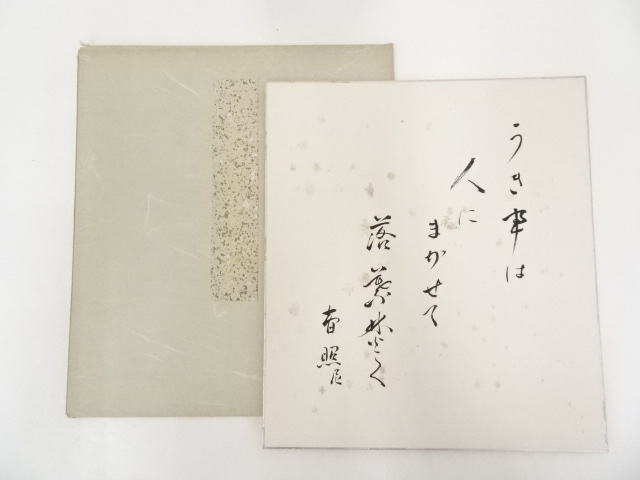 うき事は
人に
まかせて
落葉焚く
春照尼